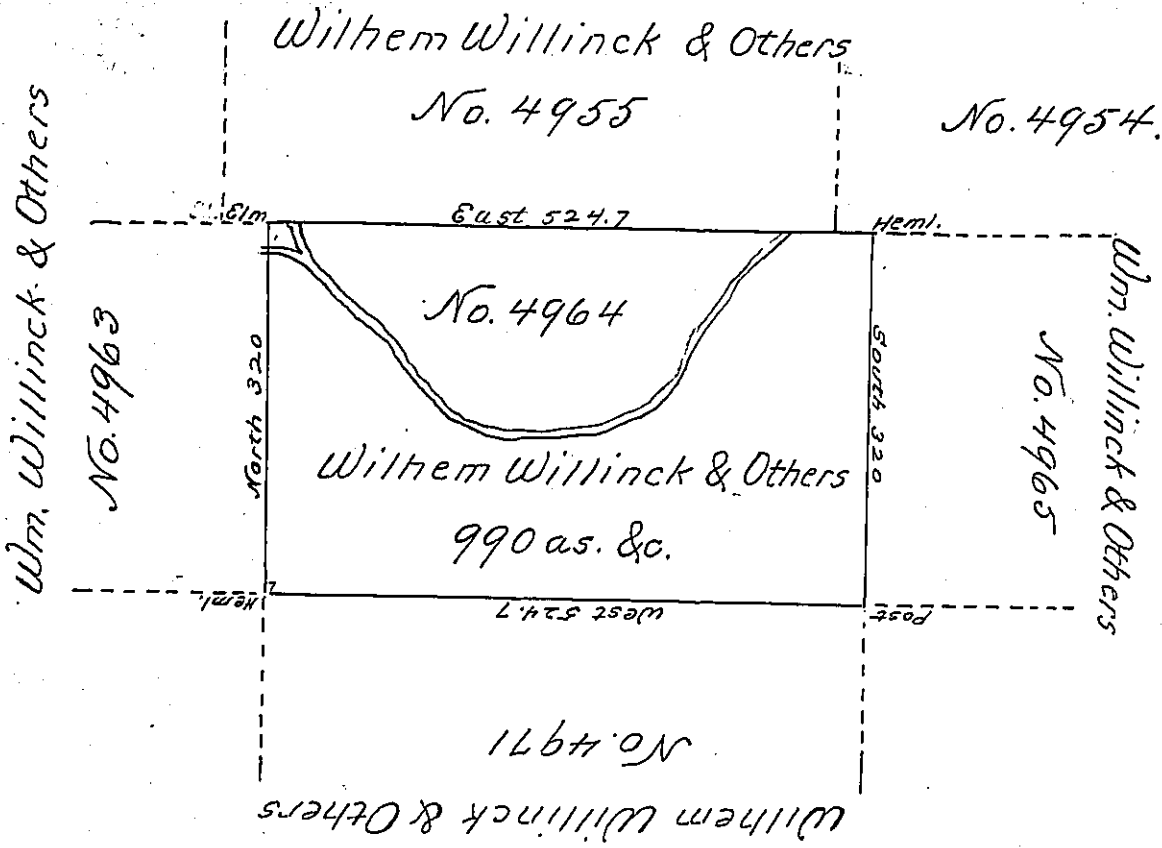 Wilhem Willinck & Others
No. 4955
No. 4954.
Wm. Willinck & Others
No. 4963
Elm
East 524.7
Heml.
No. 4964
North 320
South 320
Wilhem Willinck & Others
990 as. &c.
No. 4965
Wm. Willinck & Others
Heml.
West 524.7
Post
No. 4971
Wilhem Willinck & Others